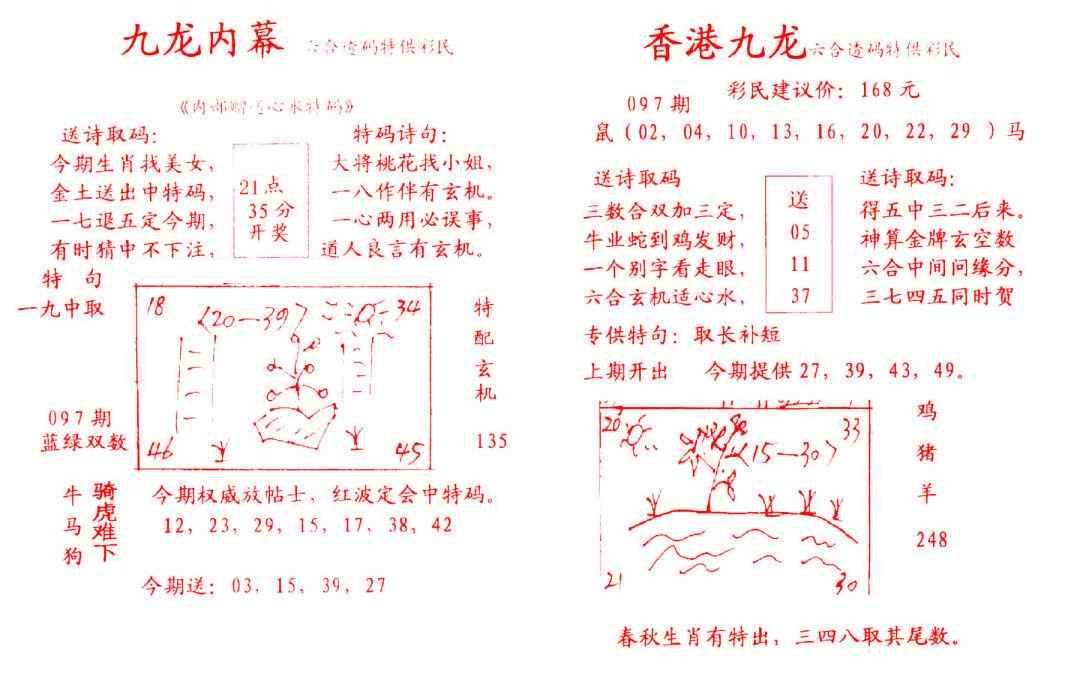 九龙内幕 六合透码特供彩民
《内部赠送心水特码》
送诗取码：
今期生肖找美女，
金土送出中特码，
一七退五定今期，
有时猜中不下注，
21点
35分
开奖
特码诗句：
大将桃花找小姐，
一八作伴有玄机。
一心两用必误事，
道人良言有玄机。
特 句
一九中取
097期
蓝绿双数
18
〈20—39〉
34
46
45
特
配
玄
机
135
牛
马
狗
骑
虎
难
下
今期权威放帖士，红波定会中特码。
12，23，29，15，17，38，42
今期送：03，15，39，27
香港九龙 六合透码特供彩民
彩民建议价：168元
097期
鼠（02，04，10，13，16，20，22，29 ）马
送诗取码
三数合双加三定，
牛业蛇到鸡发财，
一个别字看走眼，
六合玄机适心水，
送
05
11
37
送诗取码：
得五中三二后来。
神算金牌玄空数
六合中间问缘分，
三七四五同时贺
专供特句：取长补短
上期开出 今期提供27，39，43，49。
20
〈15—30〉
33
21
30
鸡
猪
羊
248
春秋生肖有特出，三四八取其尾数。